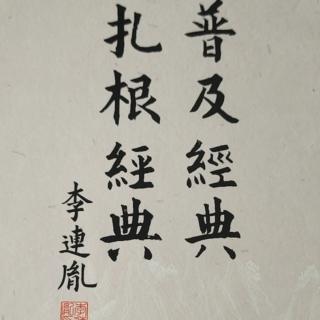 普及經典
扎根經典
李連胤